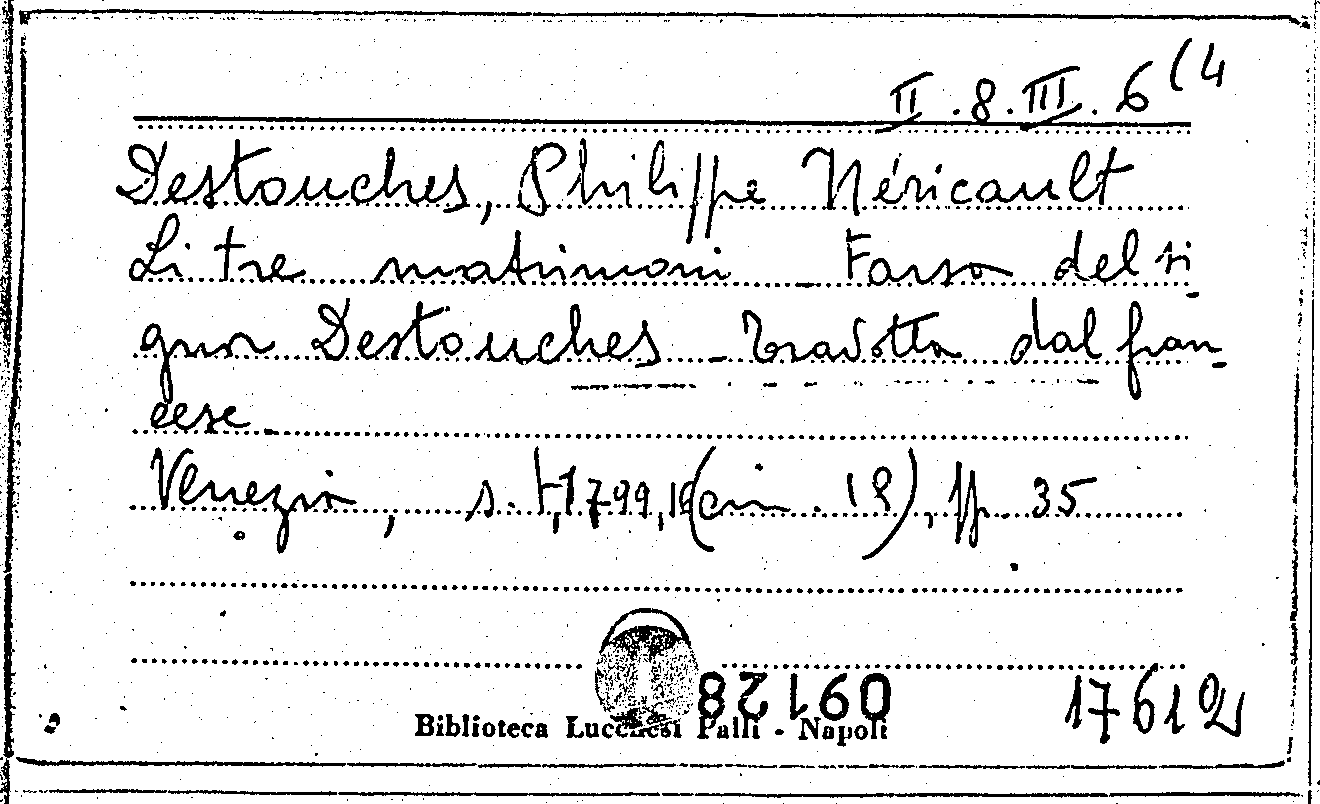 II.8.III.6(4
Destouches, Philippe Néricault
Li tre matrimoni - Farsa del si-
gnor Destouches - Tradotta dal fran-
cese -
Venezia, s.t., 1799, 16 (cm. 18), pp. 35
09128
17612
Biblioteca Lucchesi Palli - Napoli